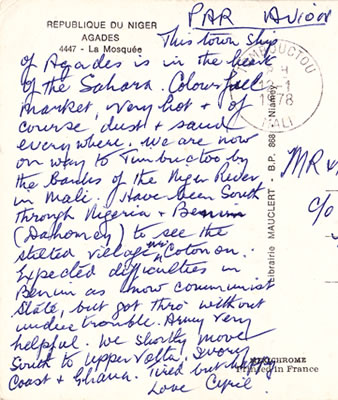 REPUBLIQUE DU NIGER
AGADES
4447 - La Mosquée
PAR AVION
This town ship
of Agades is in the heart
of the Sahara. Colourful
market, very hot & of
course, dust & sand
everywhere. We are now
on way to Timbuctoo by
the banks of the Niger River
in Mali. Have been South
through Nigeria & Benin
(Dahomey) to see the
stilted village nr Cotonou.
Expected difficulties in
Benin as now communist
State, but got thro' without
undue trouble. Army very
helpful. We shortly move
South to Upper Volta, Ivory
Coast & Ghana. Tired but happy
Love Cyril.
TOMBOUCTOU
12-1
1978
MALI
Librairie MAUCLERT - B.P. 868 - Niamey
MR &
C/O
Printed in France